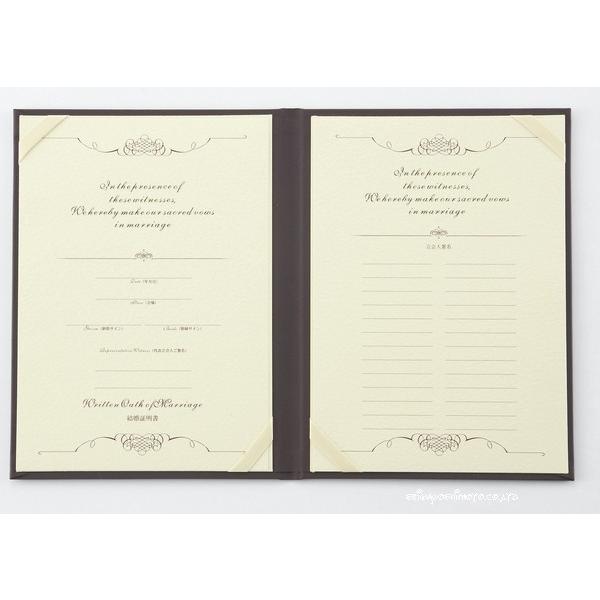 In the presence of
these witnesses,
We hereby make our sacred vows
in marriage
Date (年月日)
Place (会場)
Groom (新郎サイン) Bride (新婦サイン)
Representative Witness (代表立会人ご署名)
Written Oath of Marriage
結婚証明書
In the presence of
these witnesses,
We hereby make our sacred vows
in marriage
立会人署名